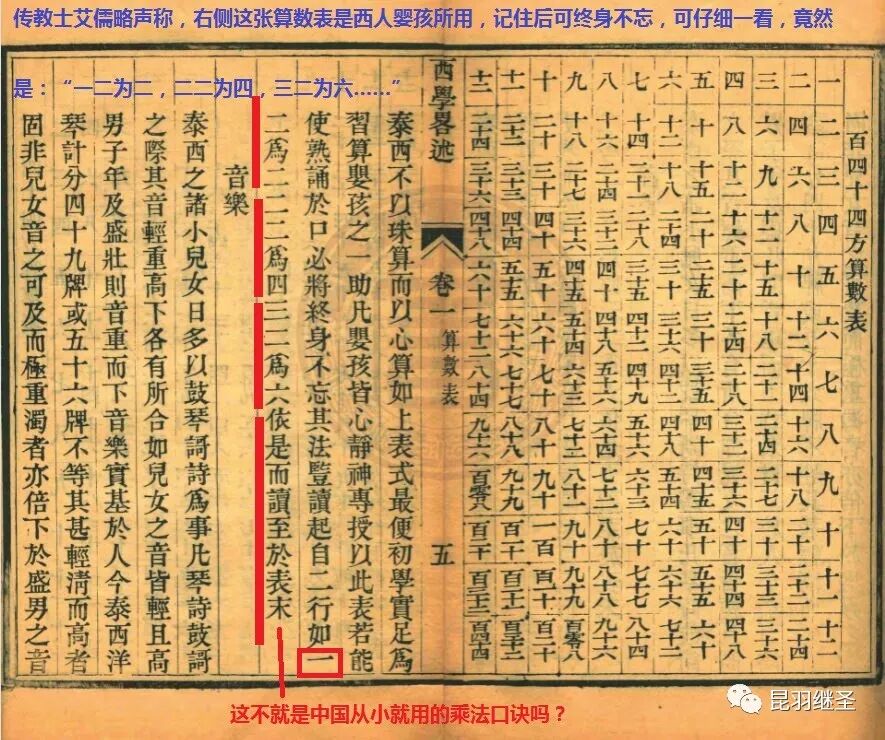 传教士艾儒略声称，右侧这张算数表是西人婴孩所用，记住后可终身不忘，可仔细一看，竟然
是：“一二为二，二二为四，三二为六……”
一百四十四方算數表
一 二 三 四 五 六 七 八 九 十 十一 十二
二 四 六 八 十 十二 十四 十六 十八 二十 二十二 二十四
三 六 九 十二 十五 十八 二十一 二十四 二十七 三十 三十三 三十六
四 八 十二 十六 二十 二十四 二十八 三十二 三十六 四十 四十四 四十八
五 十 十五 二十 二十五 三十 三十五 四十 四十五 五十 五十五 六十
六 十二 十八 二十四 三十 三十六 四十二 四十八 五十四 六十 六十六 七十二
七 十四 二十一 二十八 三十五 四十二 四十九 五十六 六十三 七十 七十七 八十四
八 十六 二十四 三十二 四十 四十八 五十六 六十四 七十二 八十 八十八 九十六
九 十八 二十七 三十六 四十五 五十四 六十三 七十二 八十一 九十 九十九 百零八
十 二十 三十 四十 五十 六十 七十 八十 九十 一百 百一十 百二十
十一 二十二 三十三 四十四 五十五 六十六 七十七 八十八 九十九 百一十 百二十一 百三十二
十二 二十四 三十六 四十八 六十 七十二 八十四 九十六 百零八 百二十 百三十二 百四十四
西學畧述 卷一 算數表 五
泰西不以珠算而以心算如上表式最便初學實足爲
習算嬰孩之一助凡嬰孩皆心靜神專授以此表若能
使熟誦於口必將終身不忘其法豎讀起自二行如一
二爲二二二爲四三二爲六依是而讀至於表末
音樂
泰西之諸小兒女日多以鼓琴謌詩爲事凡琴詩鼓謌
之際其音輕重高下各有所合如兒女之音皆輕且高
男子年及盛壯則音重而下音樂實基於人今泰西洋
琴計分四十九牌或五十六牌不等其甚輕淸而高者
固非兒女音之可及而極重濁者亦倍下於盛男之音
这不就是中国从小就用的乘法口诀吗？
昆羽继圣